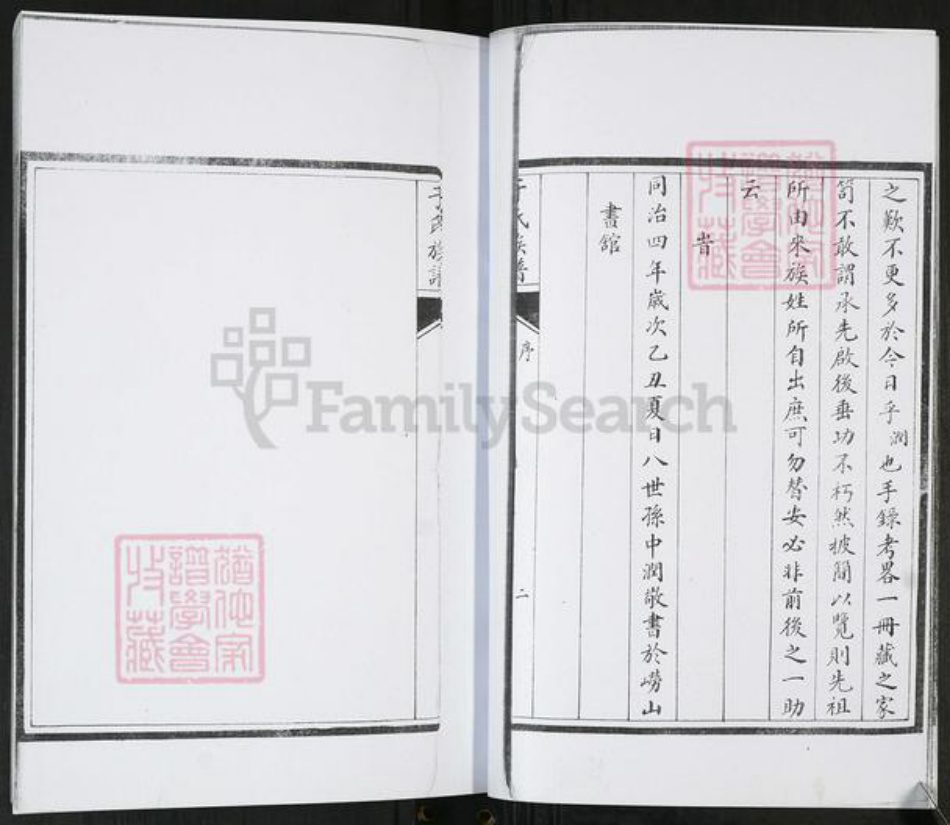 之歎不更多於今日乎潤也手錄考畧一冊藏之家
笥不敢謂承先啟後垂功不朽然披簡以覽則先祖
所由來族姓所自出庶可勿替安必非前後之一助
云
旹
同治四年歲次乙丑夏日八世孫中潤敬書於嶗山
書館
于氏族譜
序
二
于氏族譜
猶他家
譜學會
收藏
猶他家
譜學會
收藏
FamilySearch